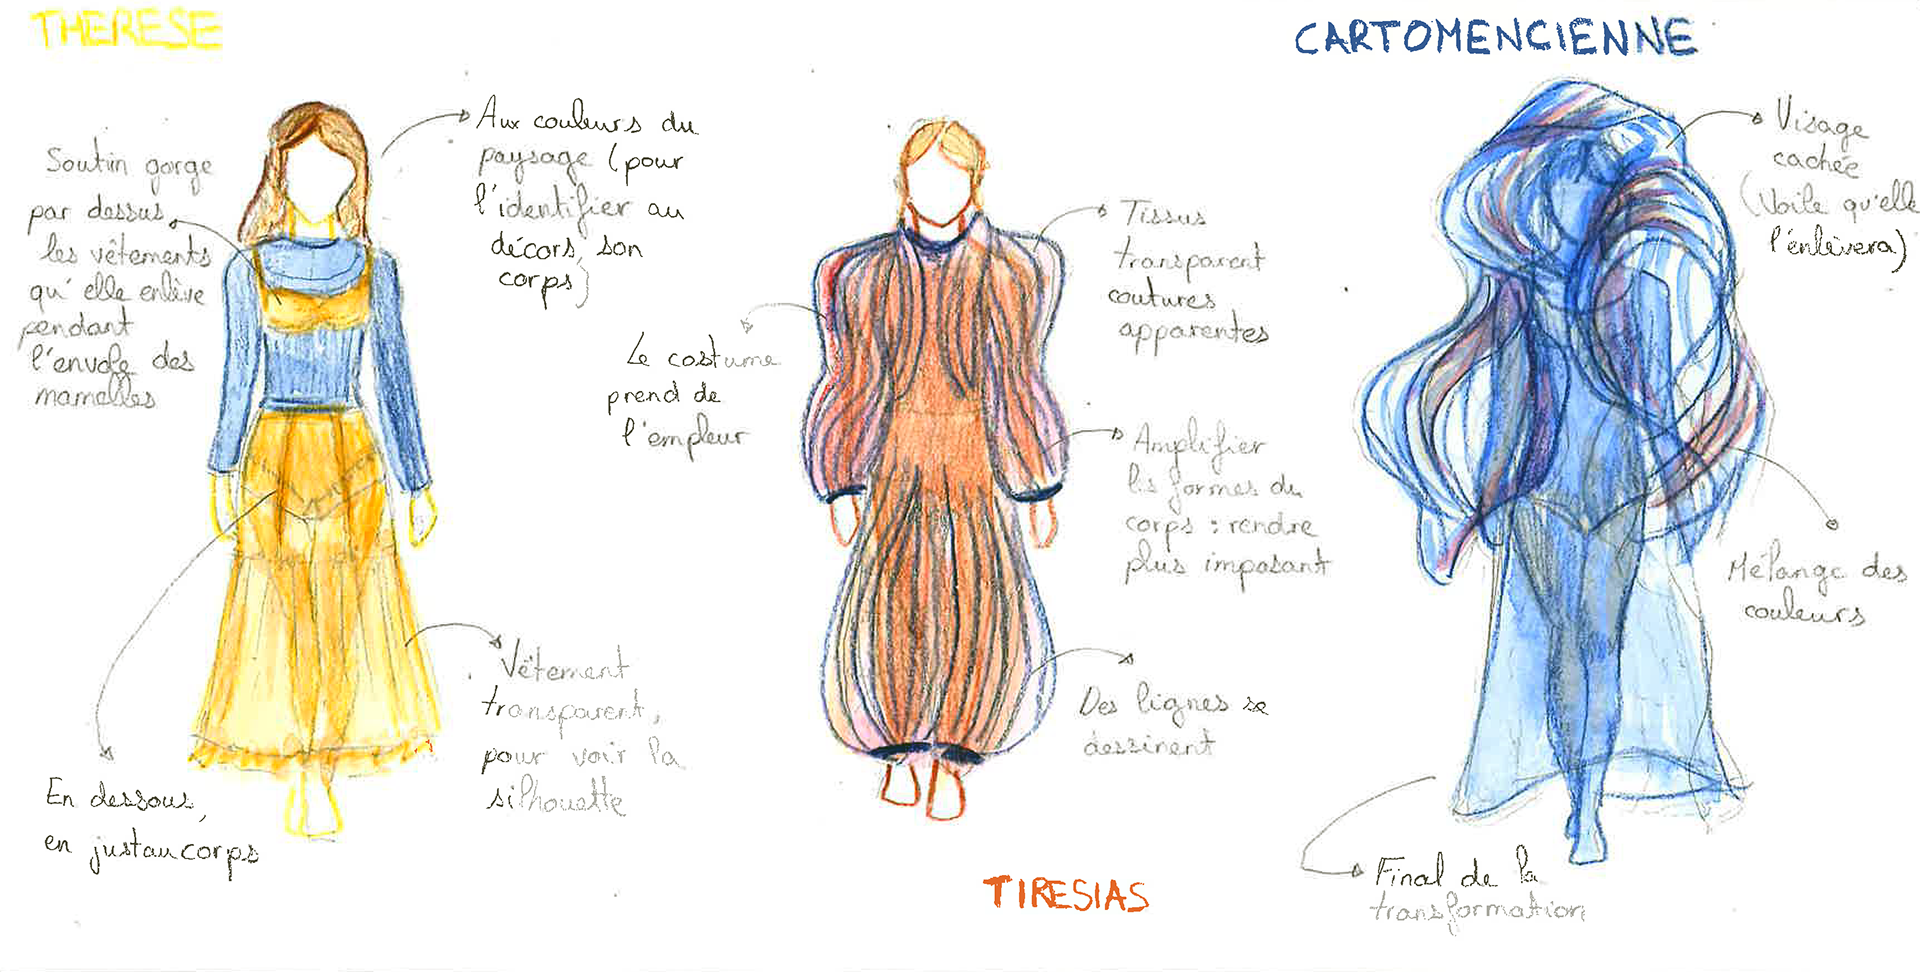 THERESE
Soutin gorge
par dessus
les vêtements
qu'elle enlève
pendant
l'envole des
mamelles
Aux couleurs du
paysage (pour
l'identifier au
décors, son
corps)
En dessous,
en justaucorps
Vêtement
transparent,
pour voir la
silhouette
Le costume
prend de
l'empleur
Tissus
transparent
coutures
apparentes
Amplifier
les formes du
corps : rendre
plus imposant
Des lignes se
dessinent
TIRESIAS
CARTOMENCIENNE
Visage
cachée
(Voile qu'elle
l'enlèvera)
Mélange des
couleurs
Final de la
transformation